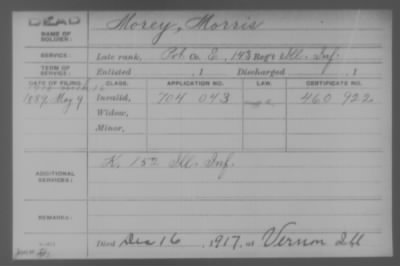 DEAD
NAME OF SOLDIER: Morey, Morris
SERVICE: Late rank, Pvt. Co. E, 143 Reg't Ill. Inf.
TERM OF SERVICE: Enlisted , 1 Discharged , 1
DATE OF FILING CLASS. APPLICATION NO. LAW. CERTIFICATE NO.
1889, May 9 Invalid, 704 043 460 922
Widow,
Minor,
ADDITIONAL SERVICES: K. 152 Ill. Inf.
REMARKS:
Died Dec 16, 1917, at Vernon Ill